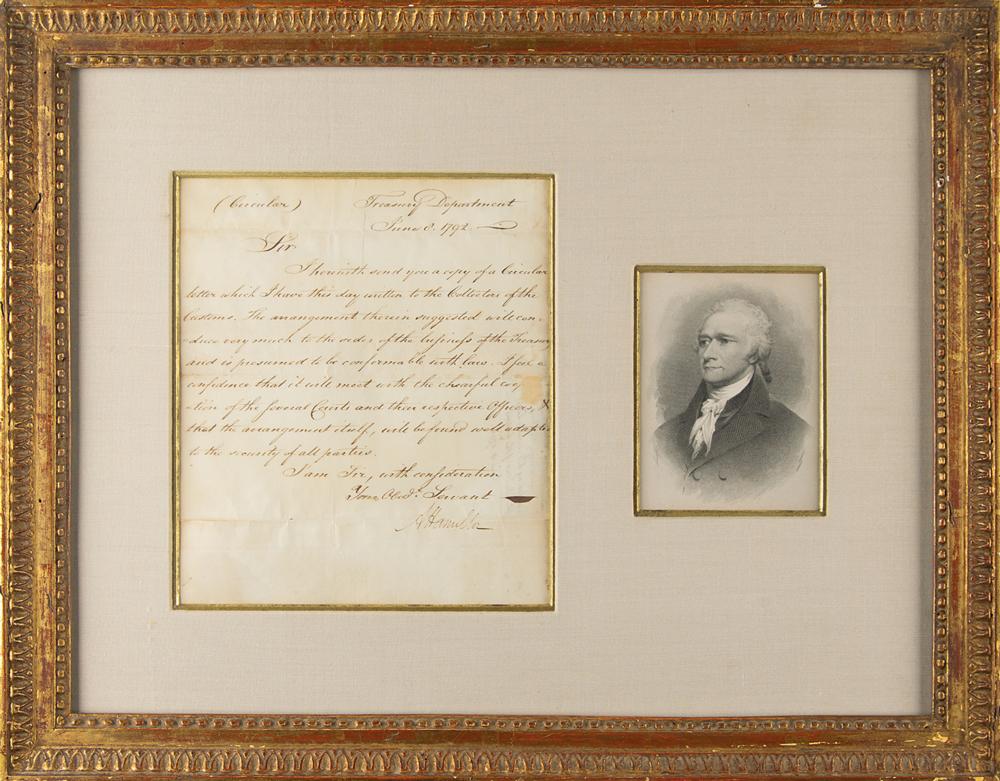 (Circular) Treasury Department
June 8. 1792.
Sir
I herewith send you a copy of a Circular
letter which I have this day written to the Collectors of the
Customs. The arrangement therein suggested will con-
duce very much to the order of the business of the Treasury
and is presumed to be conformable with law. I feel a
confidence that it will meet with the chearful
ation of the several Courts and their respective Officers, &
that the arrangement itself, will be found well adapted
to the security of all parties.
I am Sir, with consideration
Your Obedt. Servant
A Hamilton